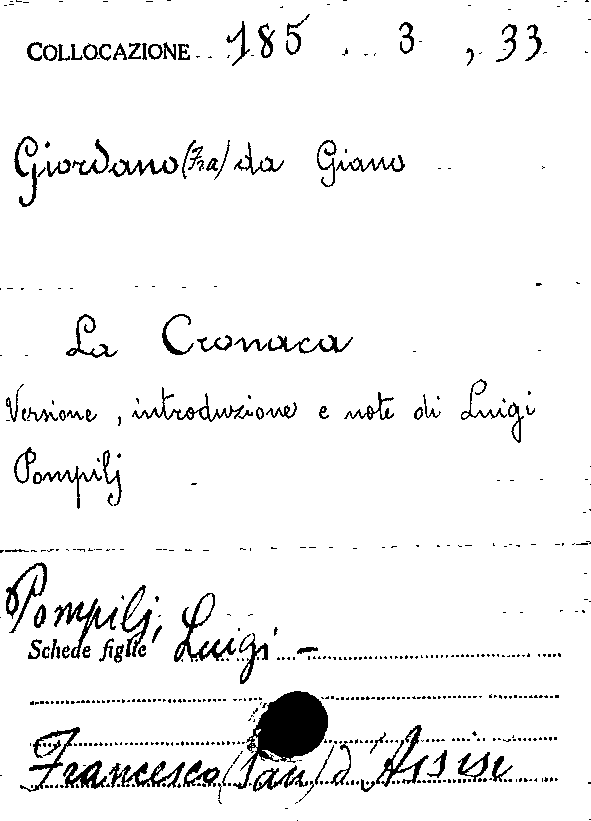 COLLOCAZIONE 185 . 3 , 33
Giordano (Fra) da Giano
La Cronaca
Versione, introduzione e note di Luigi
Pompilj
Pompilj, Luigi –
Schede figlie
Francesco (San) d'Assisi